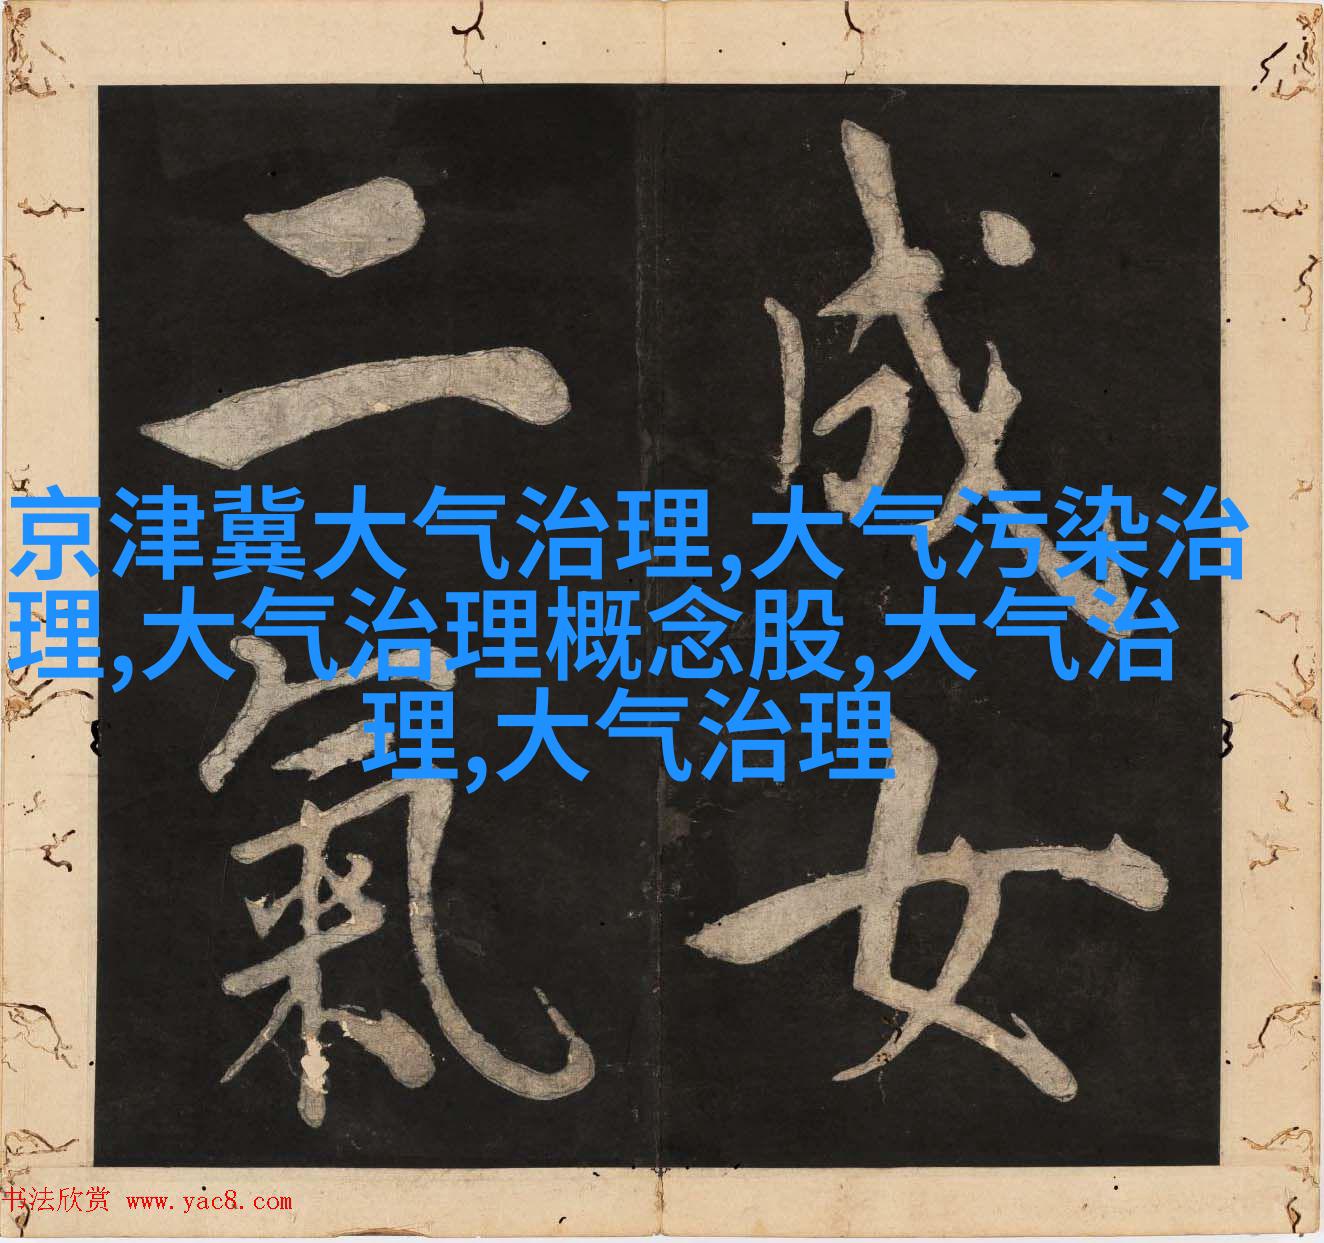 成女
二氣
京津冀大气治理,大气污染治
理,大气治理概念股,大气治
理,大气治理
书法欣赏 www.yac8.com